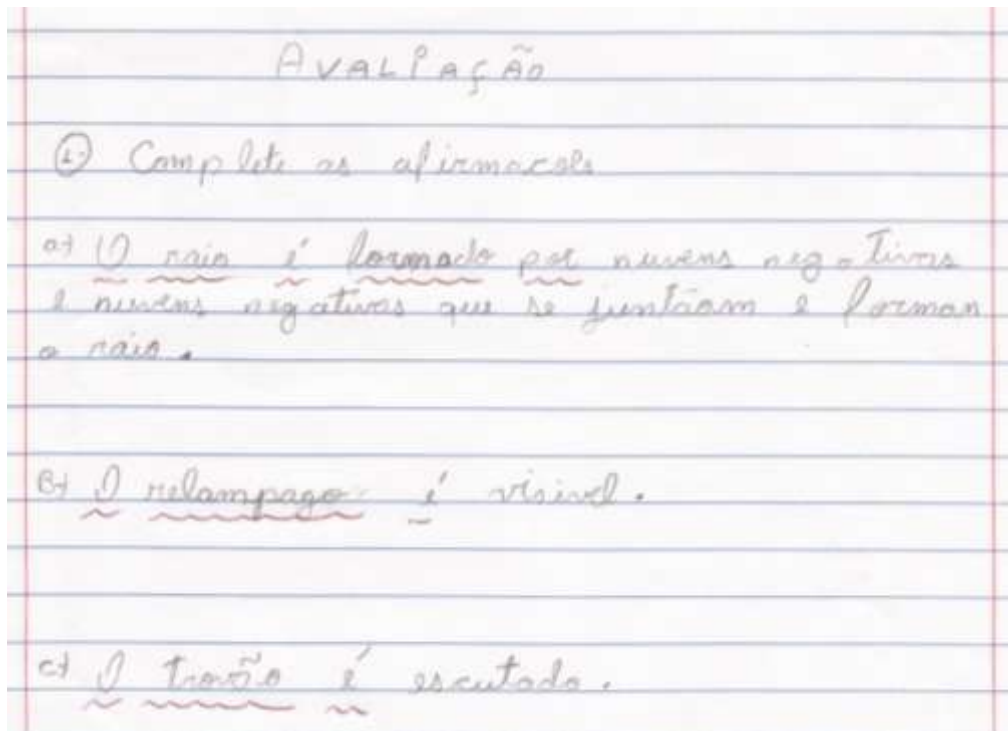 AVALIAÇÃO
1) Complete as afirmacoes
a) O raio é formado por nuvens negativas
e nuvens negativas que se juntaam e forman
o raio.
B) O relampago é visivel.
c) O trovão é escutado.